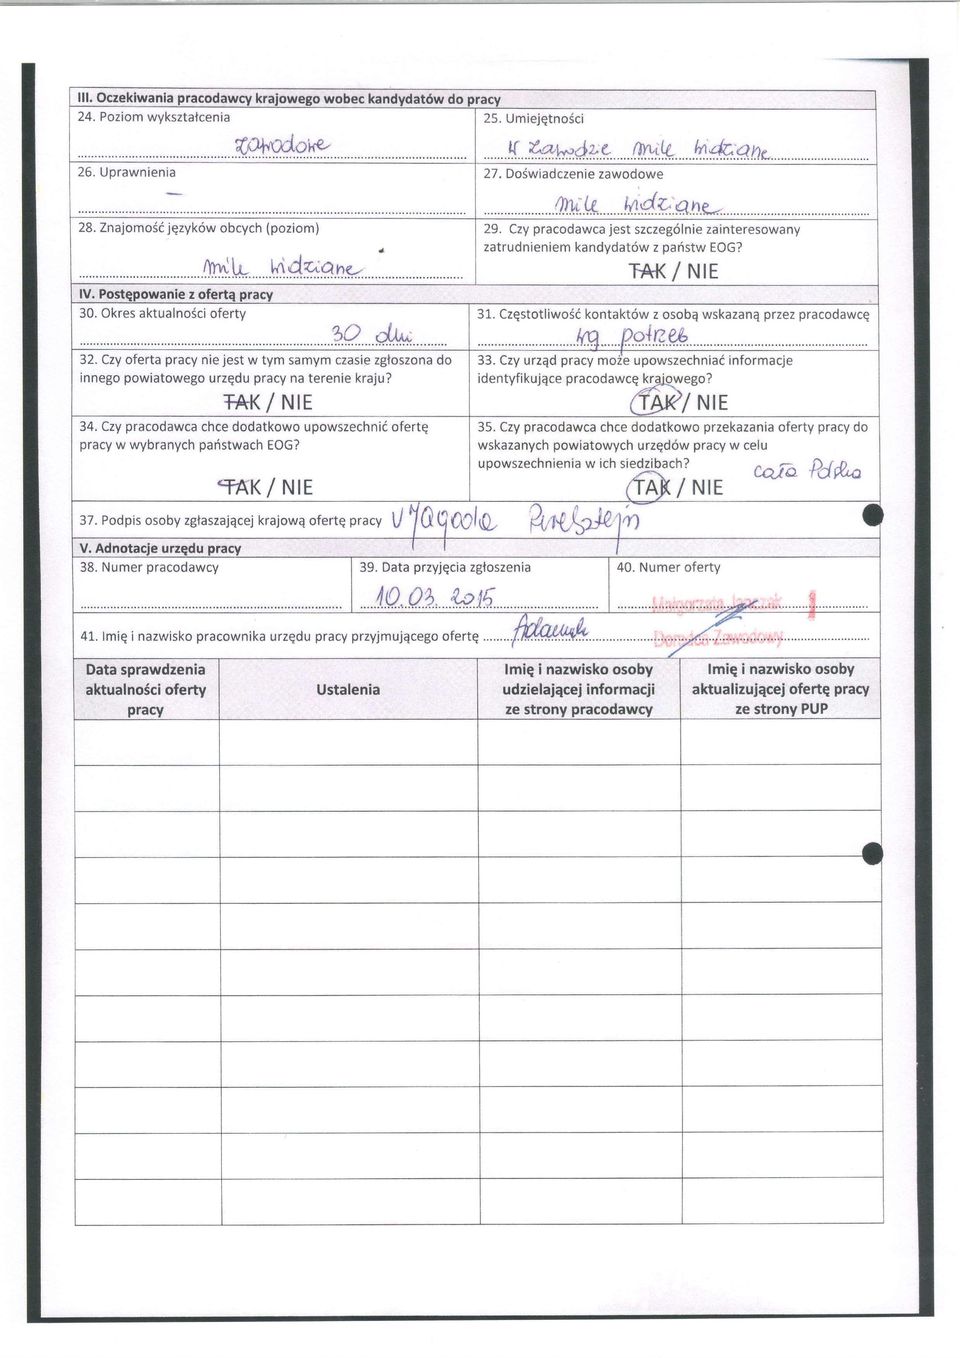 III. Oczekiwania pracodawcy krajowego wobec kandydatów do pracy
24. Poziom wykształcenia
zawodowe
25. Umiejętności
w zawodzie mile widziane
26. Uprawnienia
—
27. Doświadczenie zawodowe
mile widziane
28. Znajomość języków obcych (poziom)
mile widziane
29. Czy pracodawca jest szczególnie zainteresowany
zatrudnieniem kandydatów z państw EOG?
TAK / NIE
IV. Postępowanie z ofertą pracy
30. Okres aktualności oferty
30 dni
31. Częstotliwość kontaktów z osobą wskazaną przez pracodawcę
wg potrzeb
32. Czy oferta pracy nie jest w tym samym czasie zgłoszona do
innego powiatowego urzędu pracy na terenie kraju?
TAK / NIE
33. Czy urząd pracy może upowszechniać informacje
identyfikujące pracodawcę krajowego?
TAK / NIE
34. Czy pracodawca chce dodatkowo upowszechnić ofertę
pracy w wybranych państwach EOG?
TAK / NIE
35. Czy pracodawca chce dodatkowo przekazania oferty pracy do
wskazanych powiatowych urzędów pracy w celu
upowszechnienia w ich siedzibach?
cała Polska
TAK / NIE
37. Podpis osoby zgłaszającej krajową ofertę pracy
V. Adnotacje urzędu pracy
38. Numer pracodawcy
39. Data przyjęcia zgłoszenia
10.03.2015
40. Numer oferty
Małgorzata
41. Imię i nazwisko pracownika urzędu pracy przyjmującego ofertę
Doradca Zawodowy
Data sprawdzenia
aktualności oferty
pracy
Ustalenia
Imię i nazwisko osoby
udzielającej informacji
ze strony pracodawcy
Imię i nazwisko osoby
aktualizującej ofertę pracy
ze strony PUP